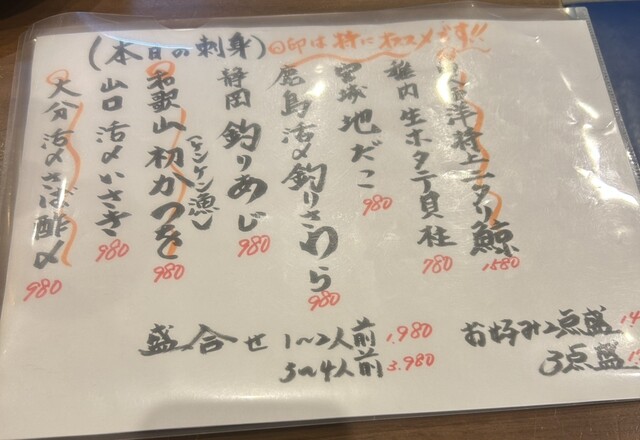 (本日の刺身)
○印は特にオススメです!!
洋特上ニタリ鯨
1580
稚内 生ホタテ貝柱
780
宮城 地だこ
980
鹿島 活〆釣りさわら
980
静岡 釣りあじ
980
和歌山 初かつを
(ケンケン漁)
980
山口 活〆いさき
980
大分 活〆さば酢〆
980
盛合せ 1〜2人前 1.980
3〜4人前 3.980
お好み2点盛
3点盛